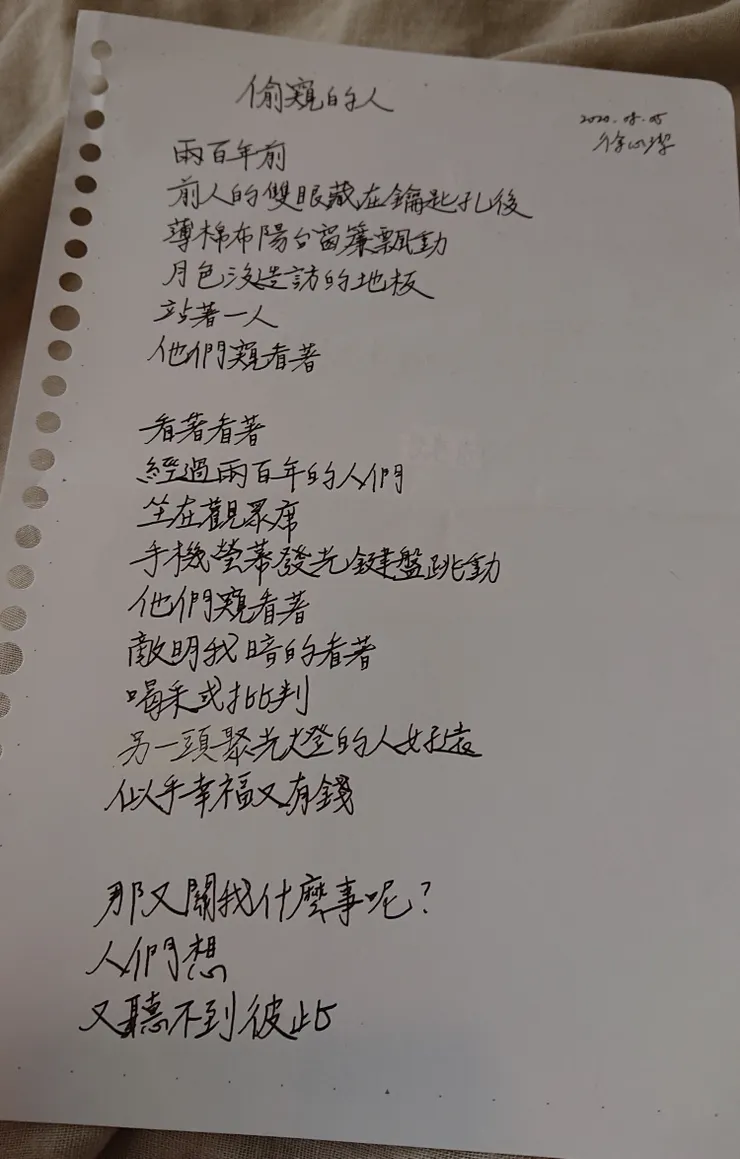 偷窺的人
2020.08.05
徐心潔
兩百年前
前人的雙眼藏在鑰匙孔後
薄棉布陽台窗簾飄動
月色沒造訪的地板
站著一人
他們窺看著
看著看著
經過兩百年的人們
坐在觀眾席
手機螢幕發光鍵盤跳動
他們窺看著
敵明我暗的看著
喝采或批判
另一頭聚光燈的人妖
似乎幸福又有錢
那又關我什麼事呢?
人們想
又聽不到彼此